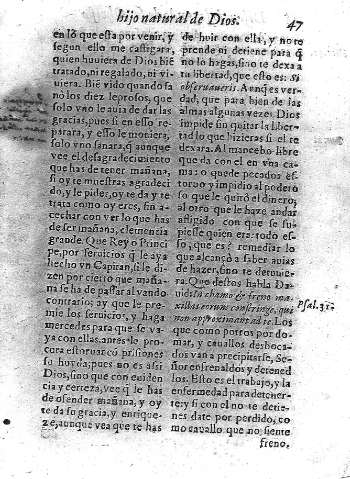 hijo natural de Dios.
47
en lo que esta por venir, y
segun ello me castigara,
quien huuiera de Dios biẽ
tratado, ni regalado, ni vi-
uiera. Biẽ vido quando sa
no los diez leprosos, que
solo vno le auia de dar las
gracias, pues si en esso re-
parara, y esso le mouiera,
solo vno sanara, q̃ aunque
vee el desagradecimiento
que has de tener mañana,
si oy te muestras agradeci
do, y le pides, oy te da y te
trata como oy eres, sin a-
cechar con ver lo que has
de ser mañana, clemencia
grande. Que Rey o Princi
pe, por seruicios q̃ le aya
hecho vn Capitan, si le di-
zen por cierto que maña-
na se ha de passar al vando
contrario; ay que le pre-
mie los seruicios, y haga
mercedes para que se va-
ya con ellas, antes le pro-
cura estoruar cõ prisiones
su huyda, pues no es assi
Dios, sino que con euiden
cia y certeza, vee q̃ le has
de ofender mañana, y oy
te da su gracia, y enrique-
ze, aunque vea que te has
de huir con ella, y no te
prende ni detiene para q̃
no lo hagas, sino te dexa a
tu libertad, que esto es: Si
obseruaueris. Aunq̃ es ver-
dad, que para bien de las
almas algunas vezes Dios
impide sin quitar la liber-
tad lo que hizieras si el te
dexara. Al mancebo libre
que da con el en vna ca-
ma: o quede pecados es-
toruo y impidio al podero
so que le quitò el dinero,
al otro que le haze andar
afligido con que se su-
piesse quien era: todo es-
so, que es? remediar lo
que alcançò a saber auias
de hazer, sino te detuuie-
ra. Que destos habla Da-
uid: In chamo & freno ma-
xillas eorum constringe, qui
non approximant ad te. Los
que como potros por do-
mar, y cauallos desboca-
dos van a precipitarse, Se-
ñor enfrenaldos y detened
los. Esto es el trabajo, y la
enfermedad para detener-
te, y si con el no te detie-
nes date por perdido, co
mo cauallo que no siente
freno.
Psal. 31.